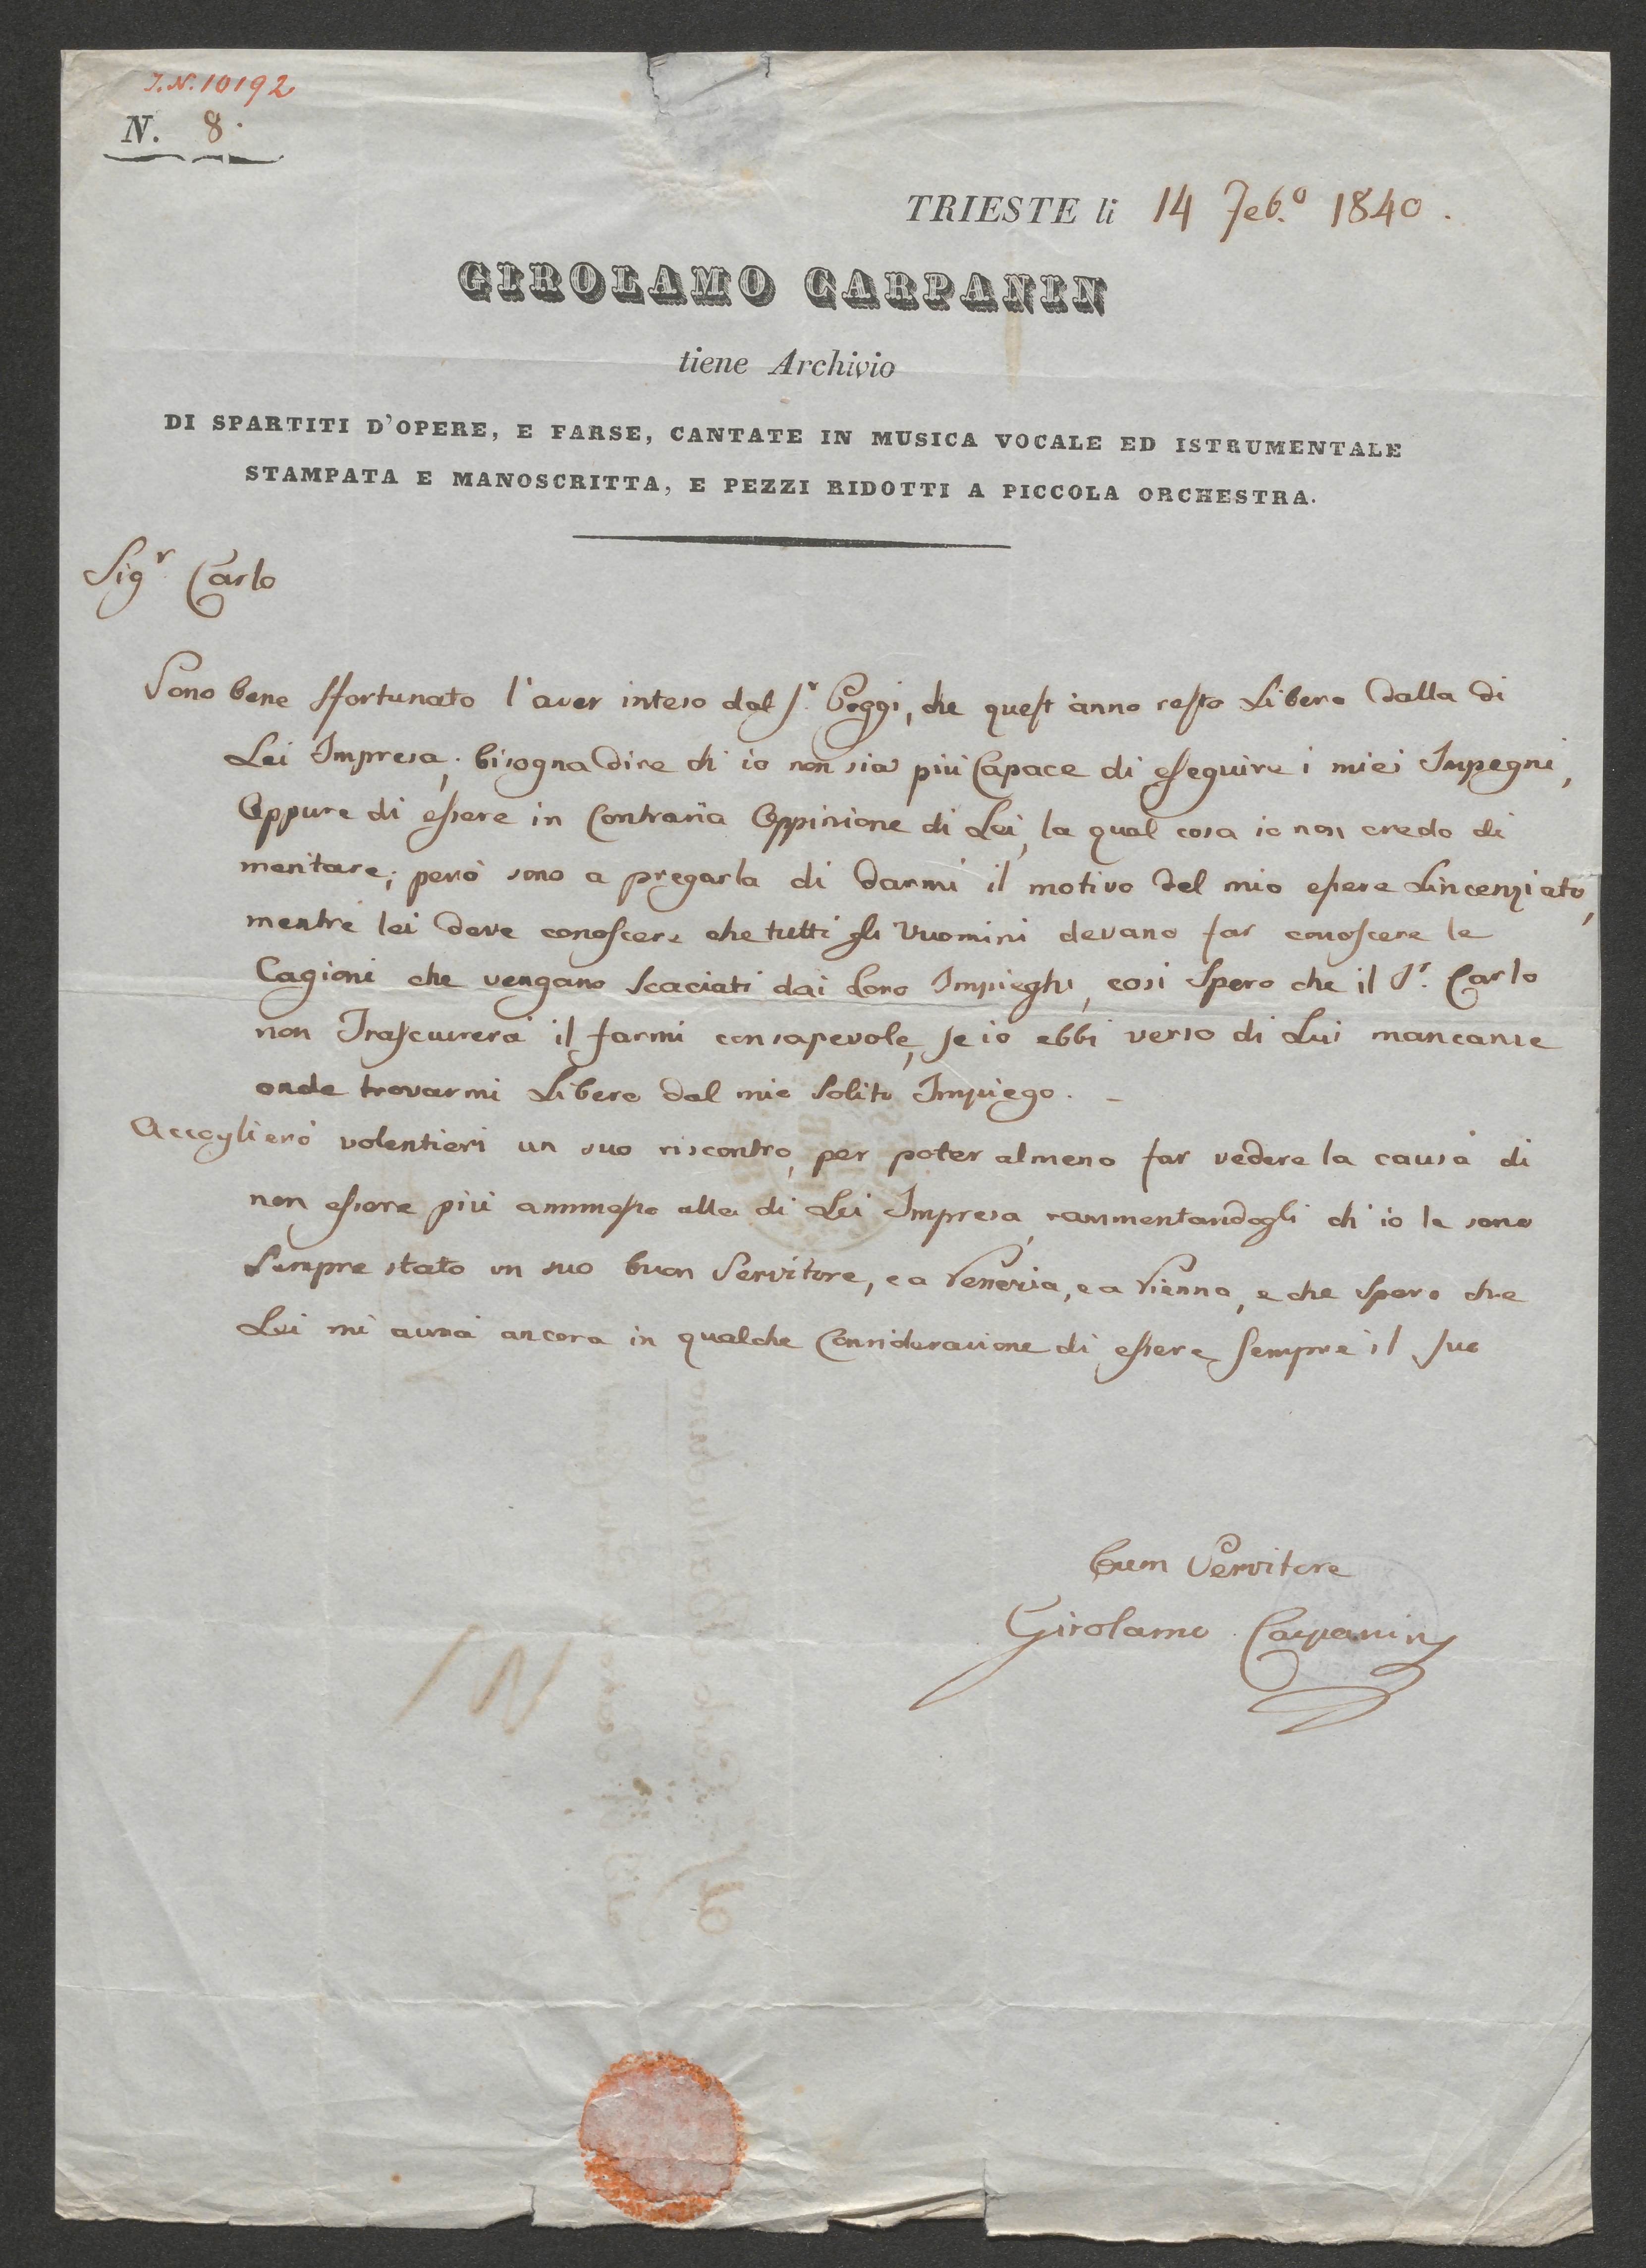 J.N. 10192
N. 8.
TRIESTE li 14 Feb.º 1840.
GIROLAMO CARPANIN
tiene Archivio
DI SPARTITI D'OPERE, E FARSE, CANTATE IN MUSICA VOCALE ED ISTRUMENTALE
STAMPATA E MANOSCRITTA, E PEZZI RIDOTTI A PICCOLA ORCHESTRA.
Sigr. Carlo
Sono bene sfortunato l'aver inteso dal Sr. Poggi, che quest'anno resto Libero dalla di
Lei Impresa; bisogna dire ch'io non sia più Capace di eseguire i miei Impegni,
Oppure di essere in Contraria Oppinione di Lei, la qual cosa io non credo di
meritare; però sono a pregarla di darmi il motivo del mio essere Lincenziato,
mentre lei deve conoscere che tutti gli Uuomini devano far conoscere le
Cagioni che vengano scaciati dai loro Impieghi, cosi Spero che il Sr. Carlo
non Trascurerà il farmi consapevole, se io ebbi verso di Lui mancanze
onde trovarmi Libero dal mio Solito Impiego. –
Accoglierò volentieri un suo riscontro, per poter almeno far vedere la causa di
non essere più ammesso alla di Lei Impresa, rammentandogli ch'io le sono
Sempre stato un suo buon Servitore, e a Venezia, e a Vienna, e che Spero che
Lei mi avrà ancora in qualche Considerazione di essere Sempre il suo
buon Servitore
Girolamo Carpanin